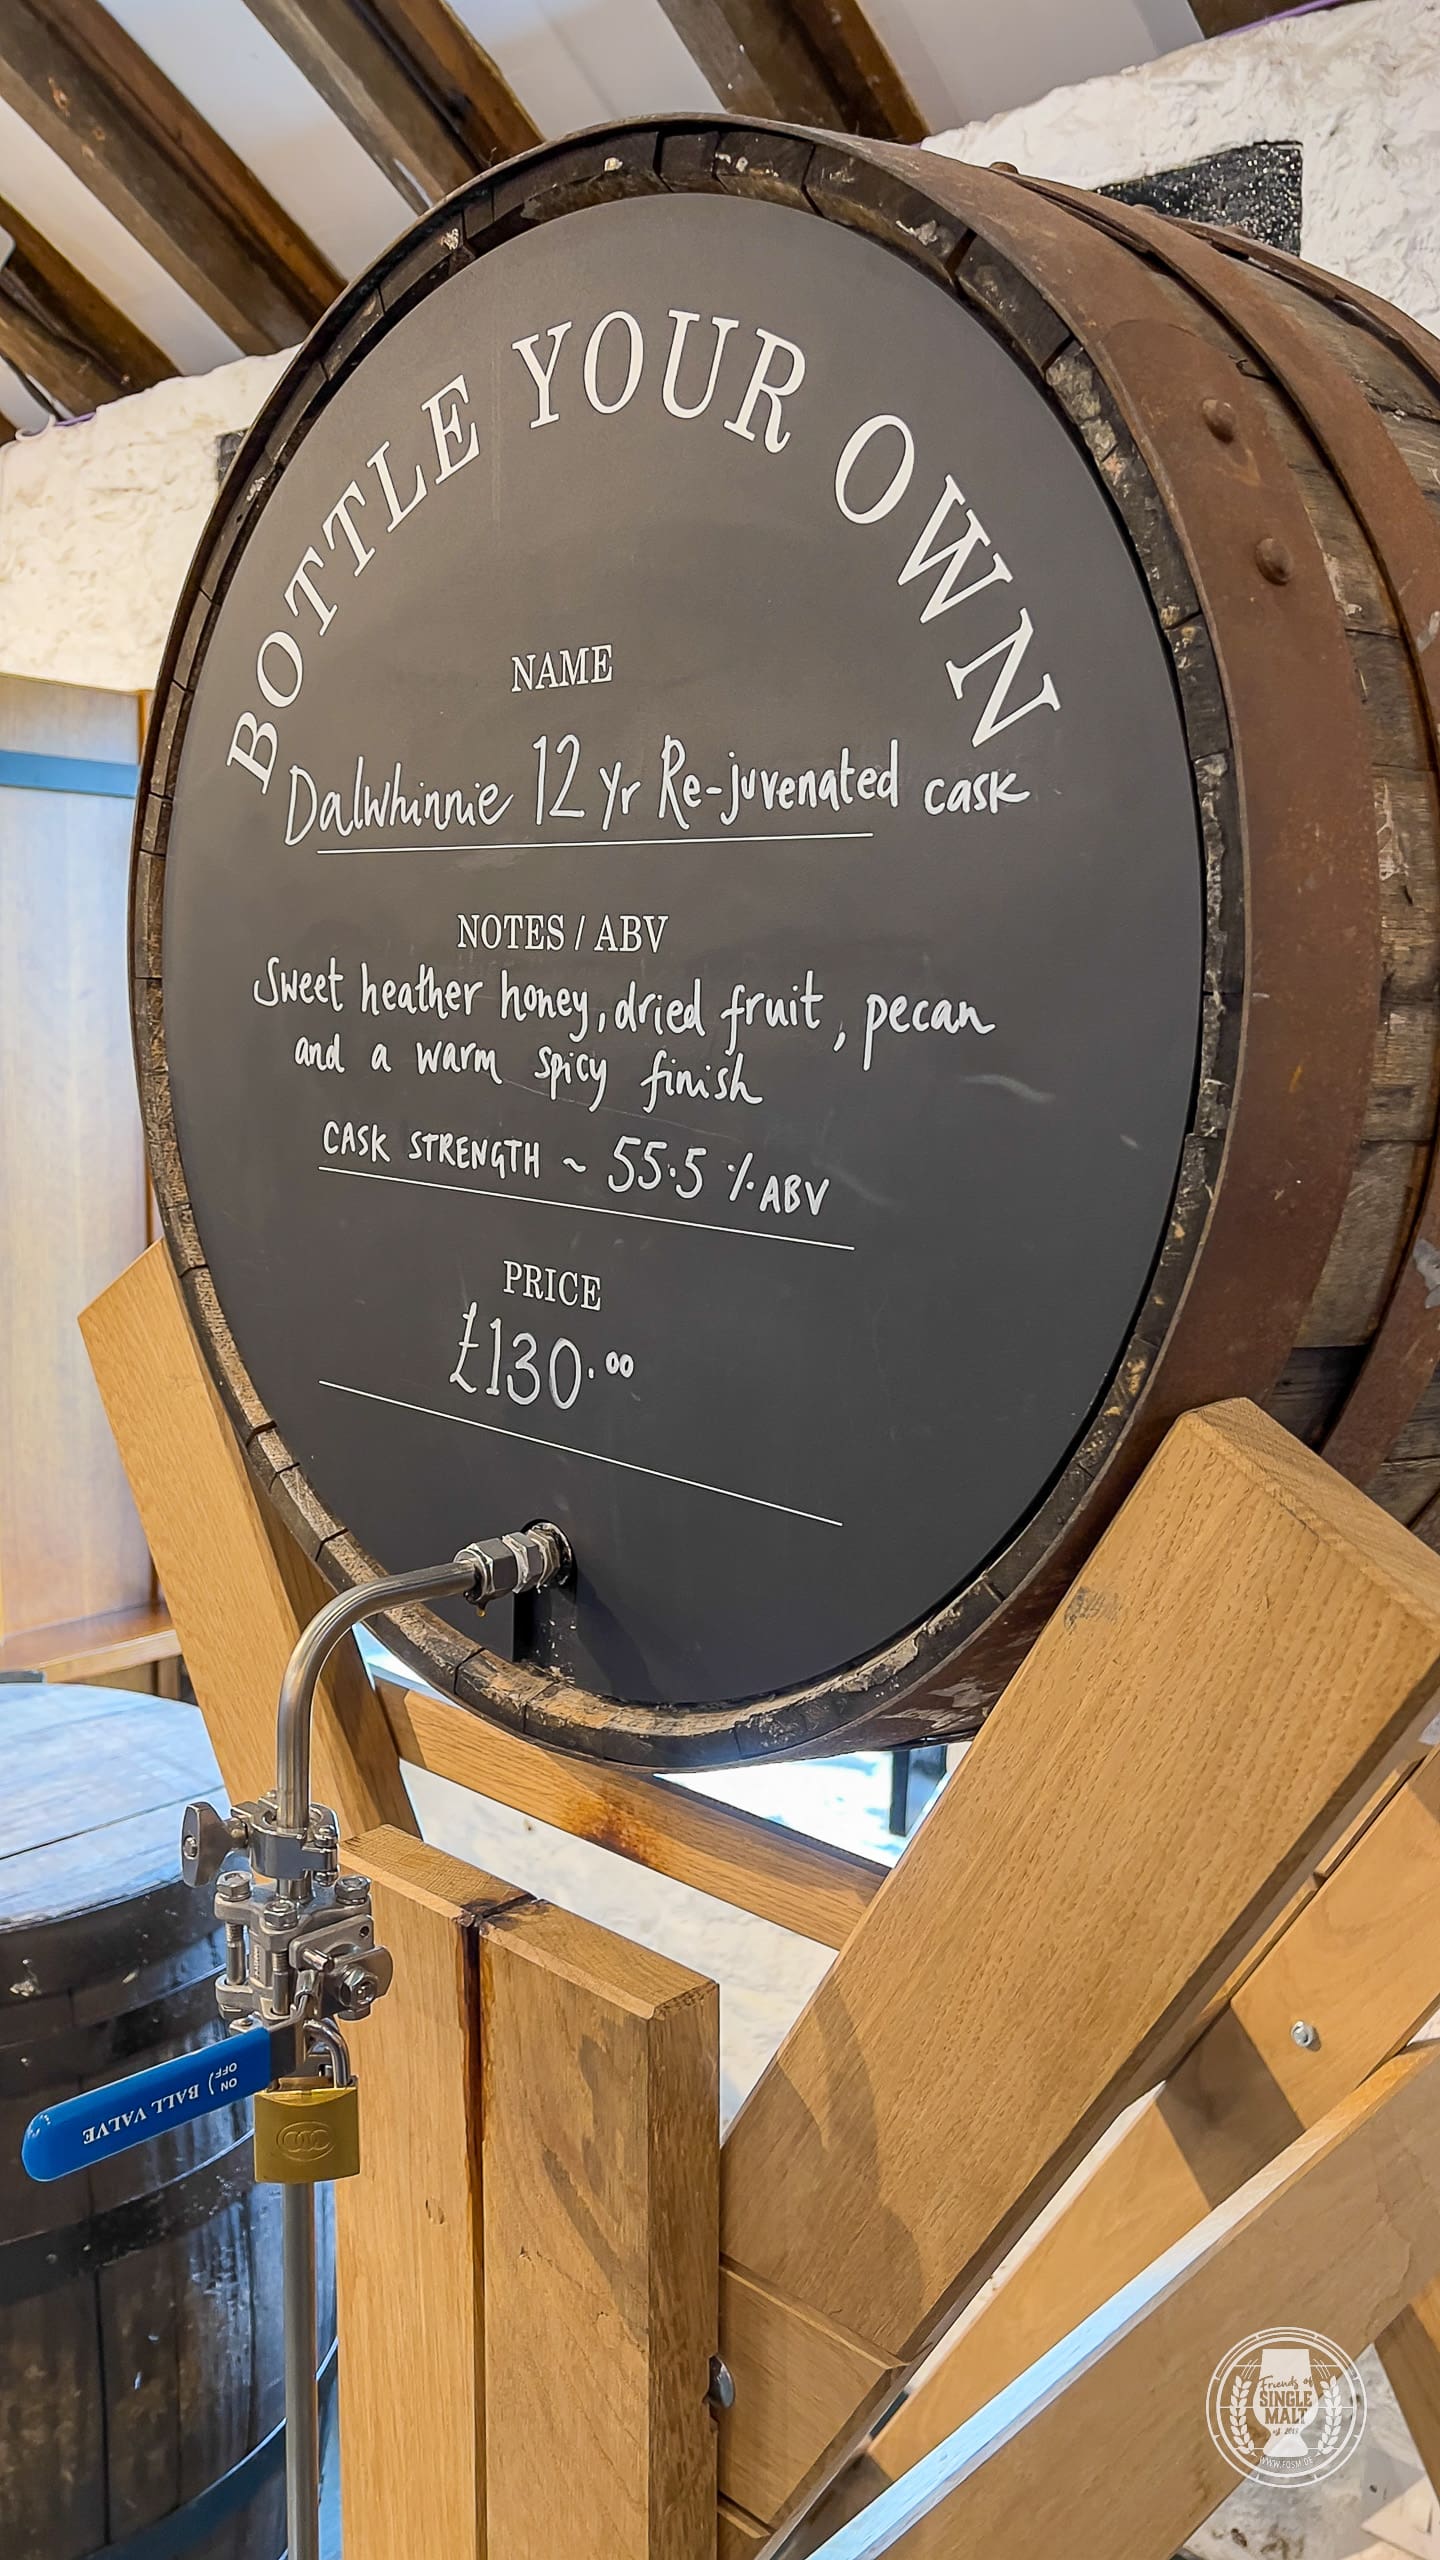 BOTTLE YOUR OWN
NAME
Dalwhinnie 12 yr Re-juvenated cask
NOTES / ABV
Sweet heather honey, dried fruit, pecan
and a warm spicy finish
CASK STRENGTH ~ 55.5 % ABV
PRICE
£130.00
ON
OFF
BALL VALVE
Friends of
SINGLE
MALT
WWW.FOSM.DE